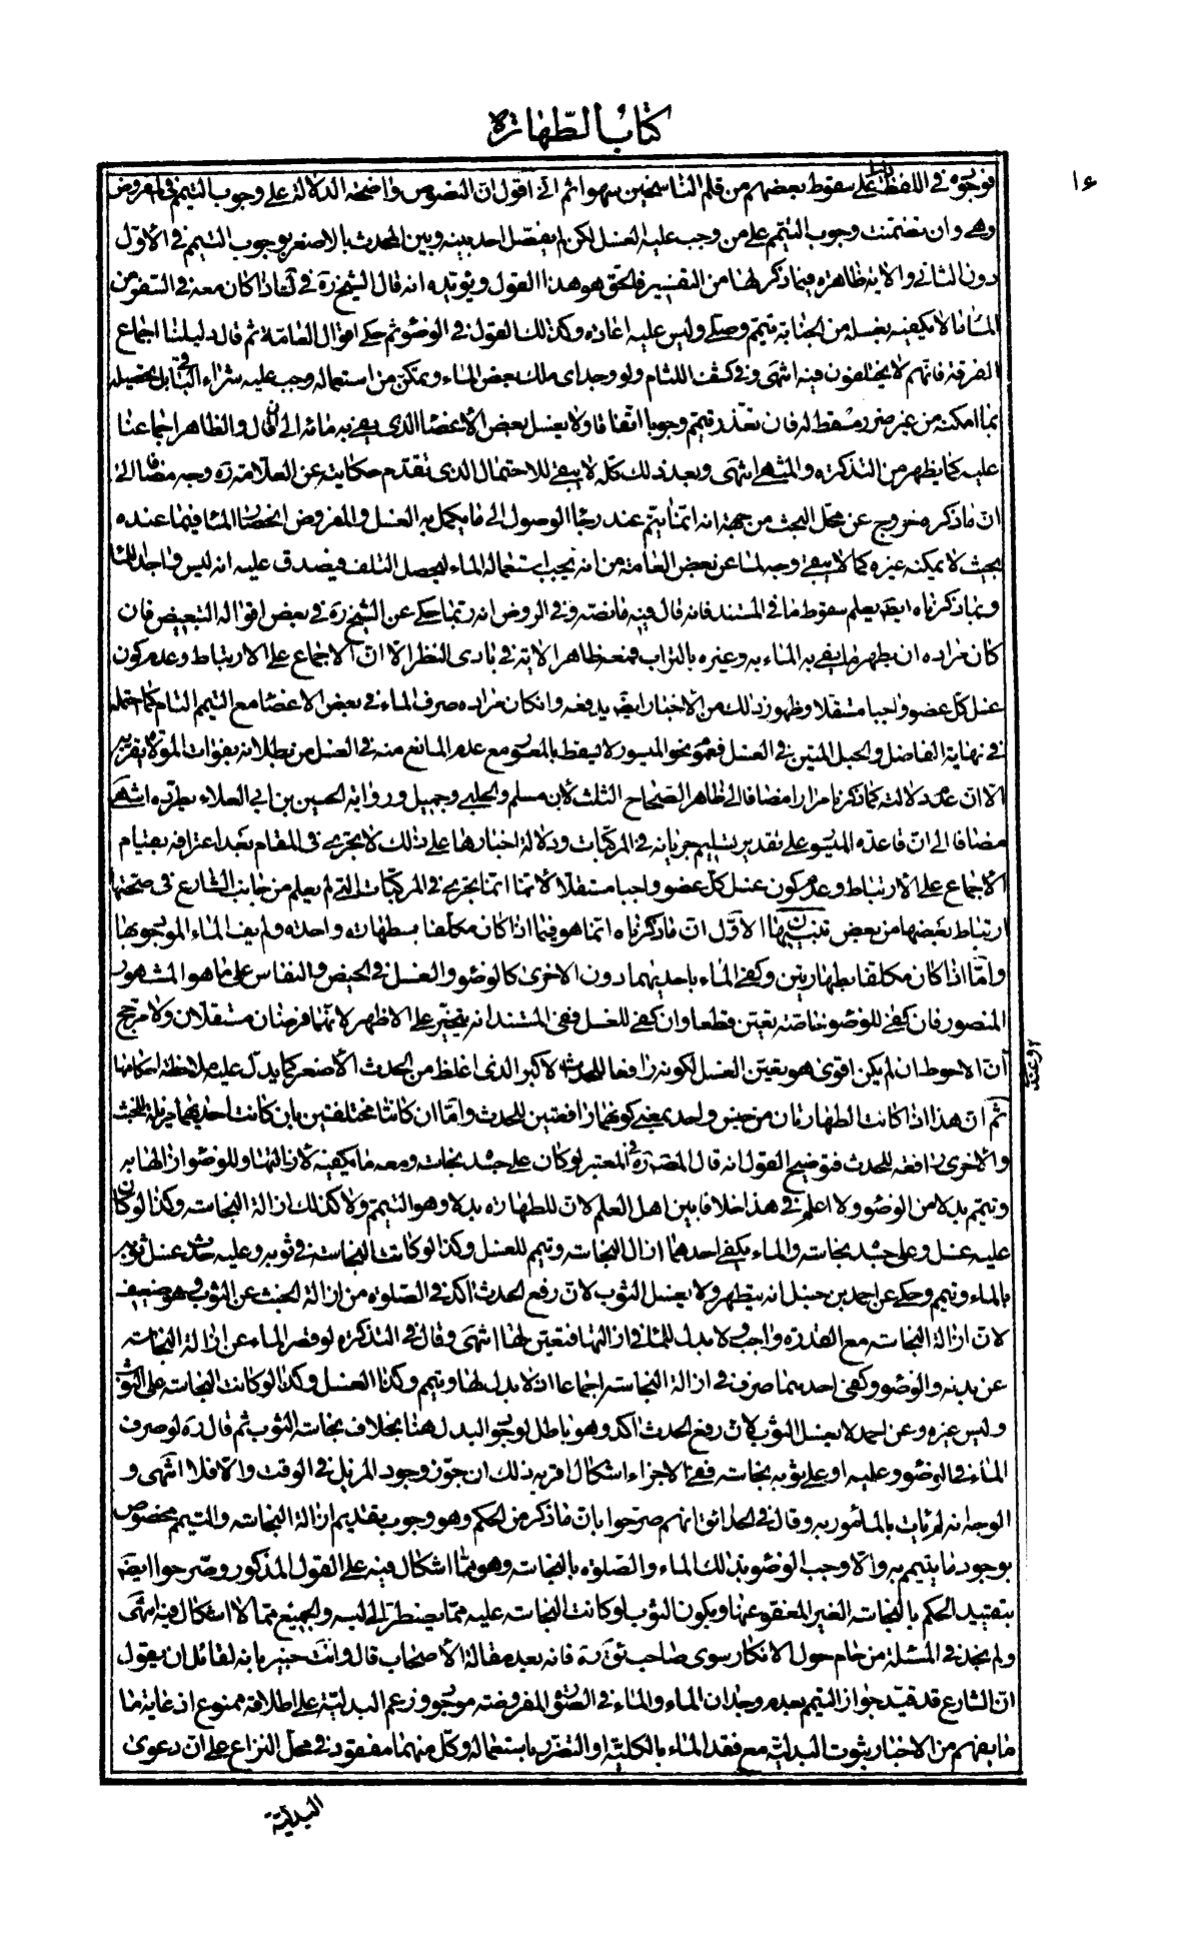 كتاب الطهارة
١٤
موجود في اللفظ على سقوط بعضهم من قلم الناسخين سهوا ثم اني اقول ان النصوص واضحة الدلالة على وجوب التيمم في المفروض
وهي وان تضمنت وجوب التيمم على من وجب عليه الغسل لكن لم يفصل احد بينه وبين المحدث بالاصغر بوجوب التيمم في الأول
دون الثاني والاية ظاهرة فيما ذكر لها من التفسير فالحق هو هذا القول ويؤيده انه قال الشيخ ره في ف اذا كان معه في السفر من
الماء ما لا يكفيه لغسله من الجنابة تيمم وصلى وليس عليه اعادة وكذلك القول في الوضوء ثم حكى اقوال العامة ثم قال دليلنا اجماع
الفرقة فانهم لا يختلفون فيه انتهى وفي كشف اللثام ولو وجد اي ملك بعض الماء وتمكن من استعماله وجب عليه شراء الباقي بل تحصيله
بما امكنه من غير ضرر مسقط له فان تعذر تيمم وجوبا اتفاقا ولا يغسل بعض الأعضاء الذي يفي به مائه الى ان قال والظاهر اجماعنا
عليه كما يظهر من التذكرة والمنتهى انتهى وبعد ذلك كله لا يبقى للاحتمال الذي تقدم حكايته عن العلامة ره وجه مضافا الى
ان ما ذكره خروج عن محل البحث من جهة انه انما يتم عند رجاء الوصول الى ما يكمل به الغسل والمفروض انحصار الماء فيما عنده
بحيث لا يمكنه غيره كما لا يبقى وجه لما عن بعض العامة من انه يجب استعمال الماء ليحصل التلف فيصدق عليه انه ليس واجدا للماء
وبما ذكرناه ايضا يعلم سقوط ما في المستند فانه قال فيه ما نصه وفي الروض انه ربما حكى عن الشيخ ره في بعض اقواله التبعيض فان
كان مراده ان يطهر ما يفي به الماء به وغيره بالتراب فمعه ظاهر الاية في بادى النظر الا ان الاجماع على الارتباط وعدم كون
غسل كل عضو واجبا مستقلا وظهور ذلك من الاخبار ايضا يدفعه وان كان مراده صرف الماء في بعض الاعضاء مع التيمم التام كما احتمله
في نهاية الفاضل والحبل المتين في الغسل فعموم نحو الميسور لا يسقط بالمعسور مع عدم المانع منه في الغسل من بطلانه بفوات الموالاة يقربه
الا ان عدم دلالته كما ذكرنا مرارا مضافا الى ظاهر الصحاح الثلث لابن مسلم والحلبي وجميل ورواية الحسين بن ابي العلاء يطرده انتهى
مضافا الى ان قاعدة الميسور على تقدير تسليم جريانه في المركبات ودلالة اخبارها على ذلك لا تجري في المقام بعد اعترافه بقيام
الاجماع على الارتباط وعدم كون غسل كل عضو واجبا مستقلا لانها انما تجري في المركبات التي لم يعلم من جانب الشارع في صحتها
ارتباط بعضها من بعض تنبيهات الأول ان ما ذكرناه انما هو فيما اذا كان مكلفا بطهارة واحدة ولم يف الماء الموجود بها
واما اذا كان مكلفا بطهارتين وكفى الماء باحديهما دون الاخرى كالوضوء والغسل في الحيض والنفاس على ما هو المشهور
المنصور فان كفى للوضوء خاصة تعين قطعا وان كفى للغسل ففي المستند انه يتخير على الاظهر لانهما فرضان مستقلان ولا مرجح
وعندي
ان الاحوط ان لم يكن اقوى هو تعين الغسل لكونه رافعا للحدث الاكبر الذي اغلظ من الحدث الأصغر كما يدل عليه ملاحظة احكامها
ثم ان هذا اذا كانت الطهارتان من جنس واحد بمعنى كونهما رافعتين للحدث واما ان كانتا مختلفتين بان كانت احديهما مزيلة للخبث
والاخرى رافعة للحدث فتوضيح القول انه قال المصنف ره في المعتبر لو كان على جسده نجاسة ومعه ما يكفيه لازالتها او للوضوء ازالها به
وتيمم بدلا من الوضوء ولا اعلم في هذا خلافا بين اهل العلم لان للطهارة بدلا وهو التيمم ولا كذلك ازالة النجاسة وكذا لو كان
عليه غسل وعلى جسده نجاسة والماء يكفي احدهما ازال النجاسة وتيمم للغسل وكذا لو كانت النجاسة في ثوبه وعليه حدث غسل ثوبه
بالماء وتيمم وحكى عن احمد بن حنبل انه يتطهر ولا يغسل الثوب لان رفع الحدث اكد في الصلوة من ازالة الخبث عن الثوب وهو ضعيف
لان ازالة النجاسة مع القدرة واجب ولا بدل للماء في ازالتها فتعين لها انتهى وقال في التذكرة لو قصر الماء عن ازالة النجاسة
عن بدنه والوضوء وكفى احدهما صرف في ازالة النجاسة اجماعا اذ لا بدل لها وتيمم وكذا الغسل وكذا لو كانت النجاسة على الثوب
وليس غيره وعن احمد لا يغسل الثوب لان رفع الحدث اكد وهو باطل لوجود البدل هنا بخلاف نجاسة الثوب ثم قال ره لو صرف
الماء في الوضوء وعليه او على ثوبه نجاسة ففي الاجزاء اشكال اقربه ذلك ان جوز وجود المزيل في الوقت والا فلا انتهى و
الوجه انه لم يات بالمأمور به وقال في الحدائق انهم صرحوا بان ما ذكر من الحكم وهو وجوب تقديم ازالة النجاسة والتيمم مخصوص
بوجود ما يتيمم به والا وجب الوضوء بذلك الماء والصلوة بالنجاسة وهو مما اشكال فيه على القول المذكور وصرحوا ايضا
بتقييد الحكم بالنجاسة الغير المعفو عنها وبكون الثوب لو كانت النجاسة عليه مما يضطر الى لبسه والجميع مما لا اشكال فيه انتهى
ولم نجد في المسئلة من حام حول الانكار سوى صاحب ئق ره فانه بعد مقالة الأصحاب قال وانت خبير بانه لقائل ان يقول
ان الشارع قد قيد جواز التيمم بعدم وجدان الماء والماء في الصورة المفروضة موجود وزعم البدلية على اطلاقه ممنوع اذ غاية ما
ما يفهم من الاخبار ثبوت البدلية مع فقد الماء بالكلية او التضرر باستعماله وكل منهما مفقود في محل النزاع على ان دعوى
البدلية